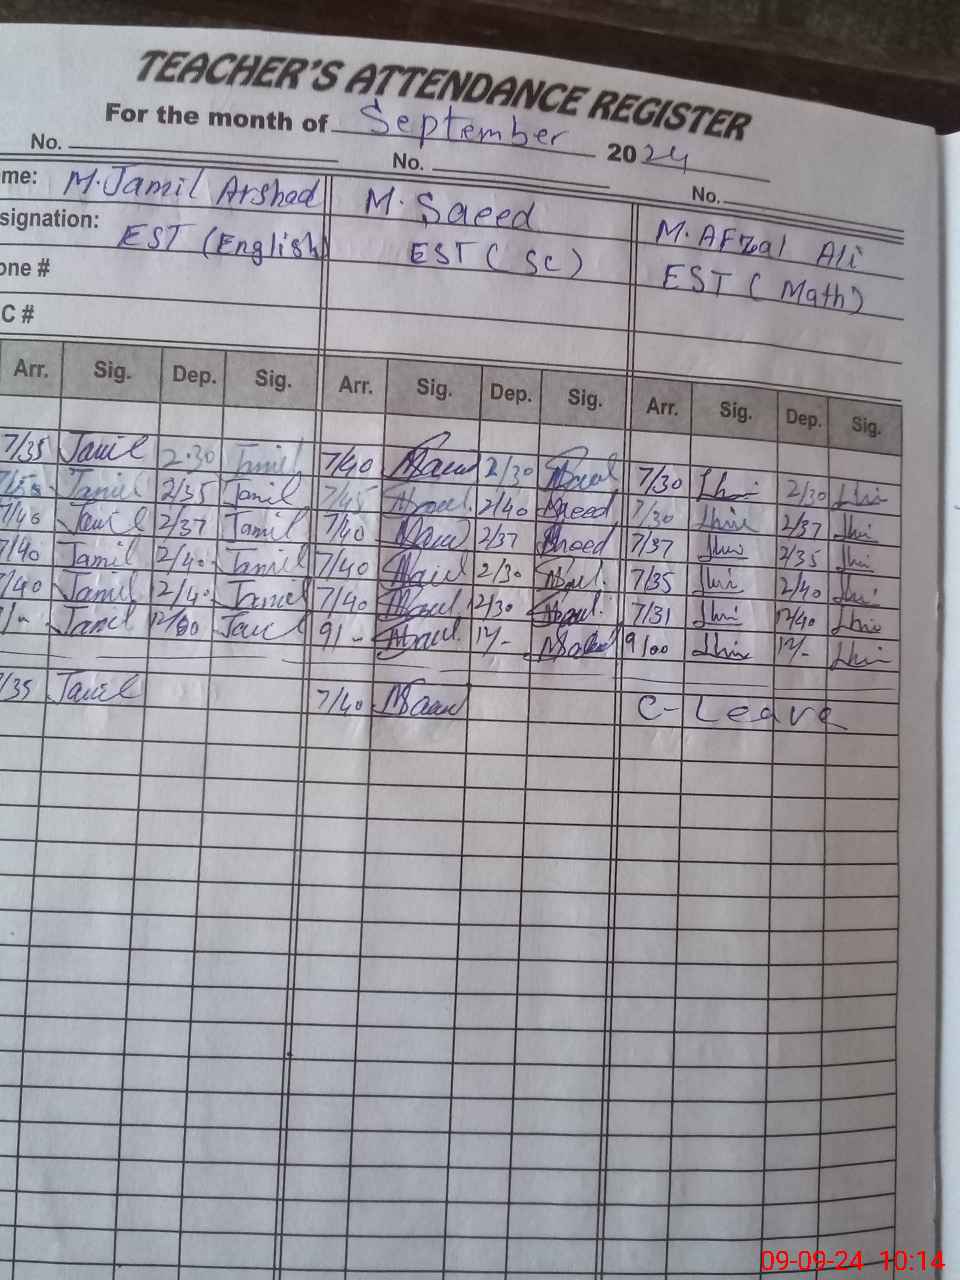 TEACHER'S ATTENDANCE REGISTER
For the month of September 2024
No. No. No.
me: M. Jamil Arshad M. Saeed M. AFzal Ali
signation: EST (English) EST ( Sc ) EST ( Math )
one #
C #
Arr. Sig. Dep. Sig. Arr. Sig. Dep. Sig. Arr. Sig. Dep. Sig.
7/35 Jamil 2.30 Jamil 7/40 2/30 7/30 2/30
Jamil 2/35 Jamil 7/45 2/40 Saeed 7/30 2/37
7/40 Jamil 2/37 Jamil 7/40 2/37 7/37 2/35
7/40 Jamil 2/40 Jamil 7/40 2/30 7/35 2/40
7/40 Jamil 12/40 Jamil 7/40 12/30 7/31 12/40
Jamil 12/00 Jamil 9/- 12/- 9/00 12/-
7/35 Jamil 7/40 C-Leave
09-09-24 10:14